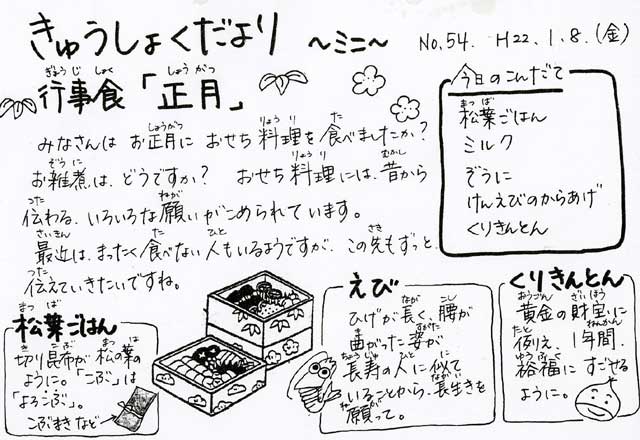 きゅうしょくだより ～ミニ～ No.54. H22.1.8.(金)
行事食「正月」
みなさんは お正月に おせち料理を食べましたか?
お雑煮は、どうですか? おせち料理には、昔から
伝わる、いろいろな願いがこめられています。
最近は、まったく食べない人もいるようですが、この先もずっと、
伝えていきたいですね。
今日のこんだて
松葉ごはん
ミルク
ぞうに
けんえびのからあげ
くりきんとん
松葉ごはん
切り昆布が松の葉の
ように。「こぶ」は
「よろこぶ」。
こぶまきなど
えび
ひげが長く、腰が
曲がった姿が
長寿の人に似て
いることから、長生きを
願って。
くりきんとん
黄金の財宝に
例え、1年間、
裕福にすごせる
ように。